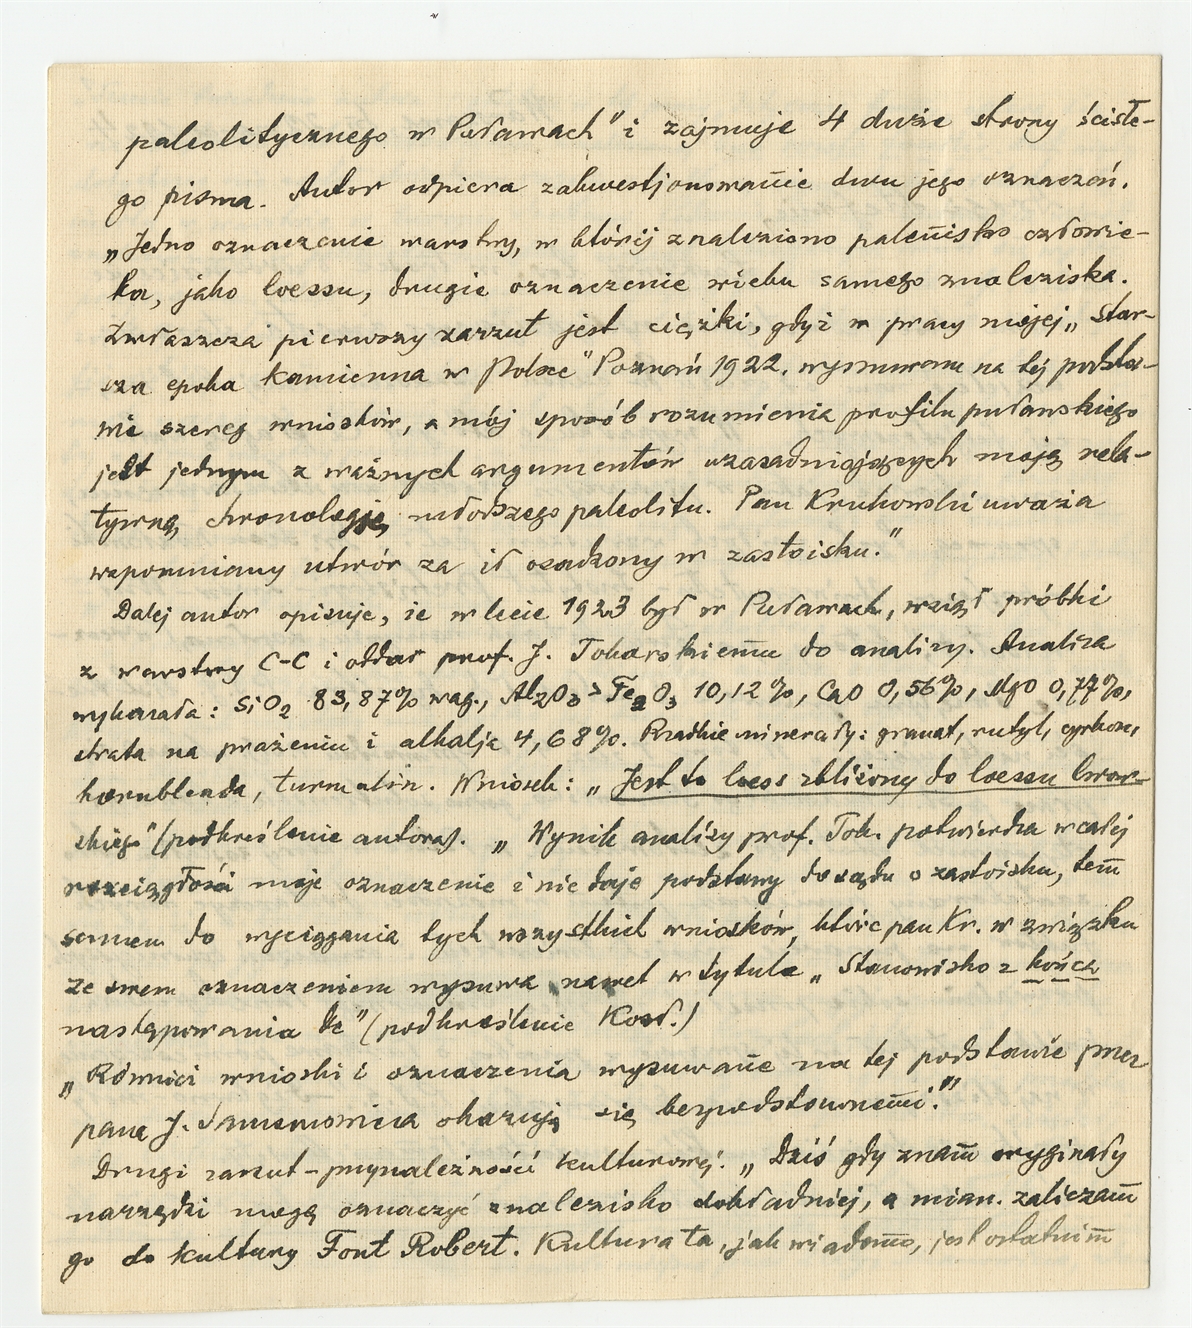 paleolitycznego w Puławach" i zajmuje 4 duże strony ścisłe-
go pisma. Autor odpiera zakwestjonowanie dwu jego oznaczeń.
„Jedno oznaczenie warstwy, w której znaleziono palenisko człowie-
ka, jako loessu, drugie oznaczenie wieku samego znaleziska.
Zwłaszcza pierwszy zarzut jest ciężki, gdyż w pracy mojej „Star-
sza epoka kamienna w Polsce" Poznań 1922. wysunąłem na tej podsta-
wie szereg wniosków, a mój sposób rozumienia profilu puławskiego
jest jednym z ważnych argumentów uzasadniających moją rela-
tywną chronologję młodszego paleolitu. Pan Krukowski uważa
wspomniany utwór za ił osadzony w zastoisku."
Dalej autor opisuje, że w lecie 1923 był w Puławach, wziął próbki
z warstwy C-C i oddał prof. J. Tokarskiemu do analizy. Analiza
wykazała: SiO2 83,87% wag., Al2O3 > Fe2O3 10,12%, CaO 0,56%, MgO 0,77%,
strata na prażeniu i alkalja 4,68%. Rzadkie minerały: granat, rutyl, cyrkon,
hornblenda, turmalin. Wniosek: „Jest to loess zbliżony do loessu lwow-
skiego" (podkreślenie autora). „Wynik analizy prof. Tok. potwierdza w całej
rozciągłości moje oznaczenie i nie daje podstawy do sądu o zastoisku, tem
samem do wyciągania tych wszystkich wniosków, które pan Kr. w związku
ze swem oznaczeniem wysuwa nawet w tytule „Stanowisko z końca
nastąpowania &c" (podkreślenie Kozł.)
„Również wnioski i oznaczenia wysuwane na tej podstawie przez
pana J. Samsonowicza okazują się bezpodstawnemi."
Drugi zarzut - przynależności kulturowej. „Dziś gdy znam oryginały
narzędzi mogę oznaczyć znalezisko dokładniej, a mian. zaliczam
go do kultury Font Robert. Kultura ta, jak wiadomo, jest ostatnim